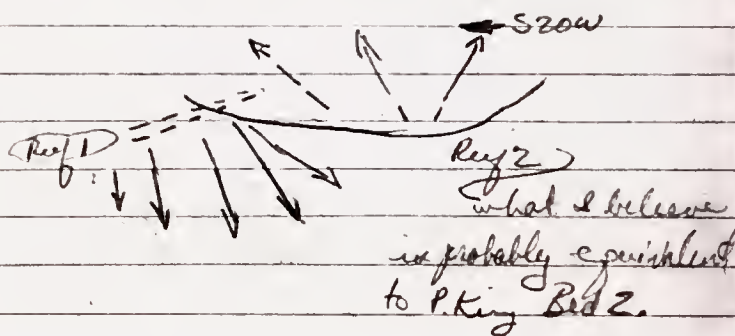 S20W
Reef 1
Reef 2
what I believe
is probably equivalent
to P. King Bed 2.